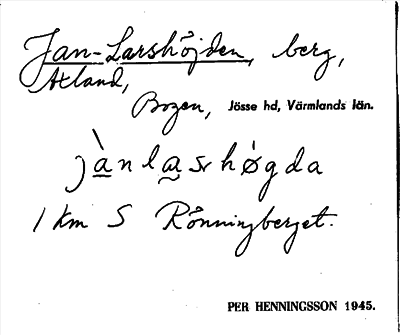 Jan-Larshöjden, berg,
Axland,
Bogen, Jösse hd, Värmlands län.
jànlasrhø̀gda
1 km S Rönningberget.
PER HENNINGSSON 1945.